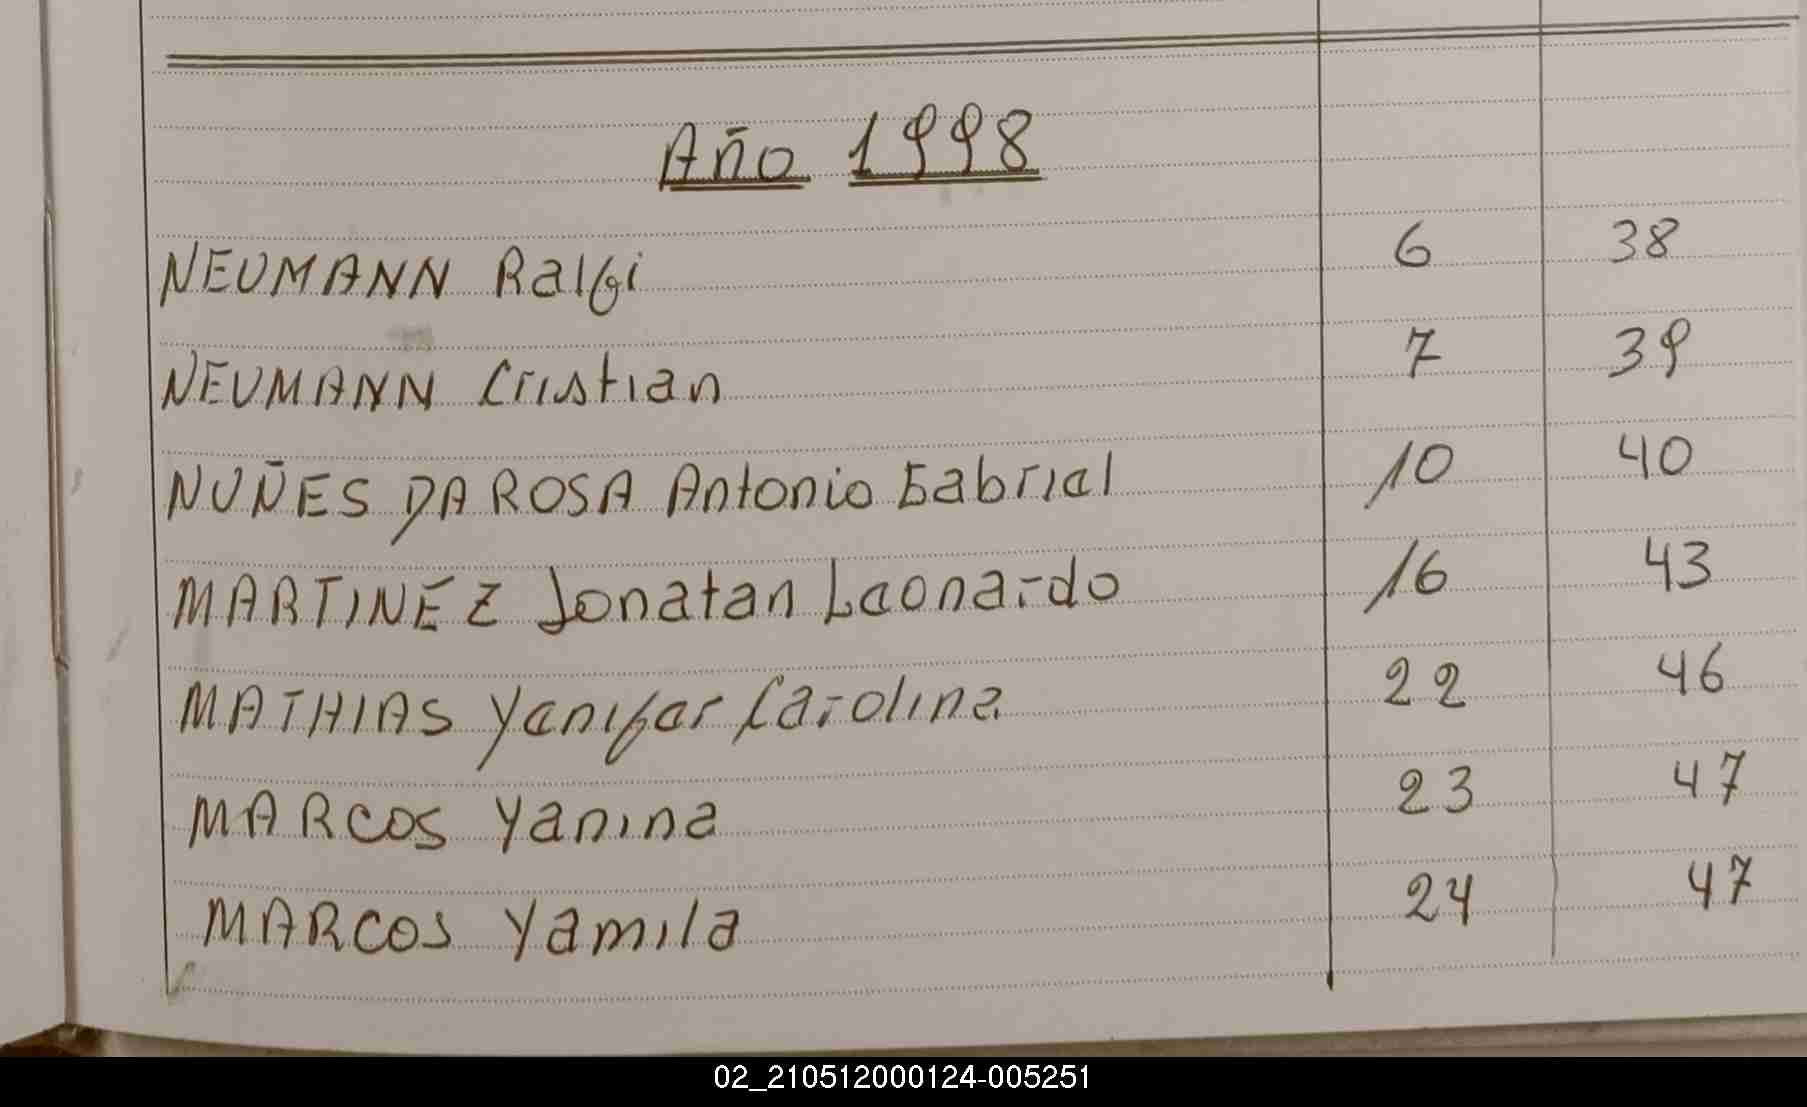 Año 1998
NEUMANN Ralfi 6 38
NEUMANN Cristian 7 39
NUÑES DA ROSA Antonio Gabriel 10 40
MARTINEZ Jonatan Leonardo 16 43
MATHIAS Yenifer Carolina 22 46
MARCOS Yanina 23 47
MARCOS Yamila 24 47
02_210512000124-005251